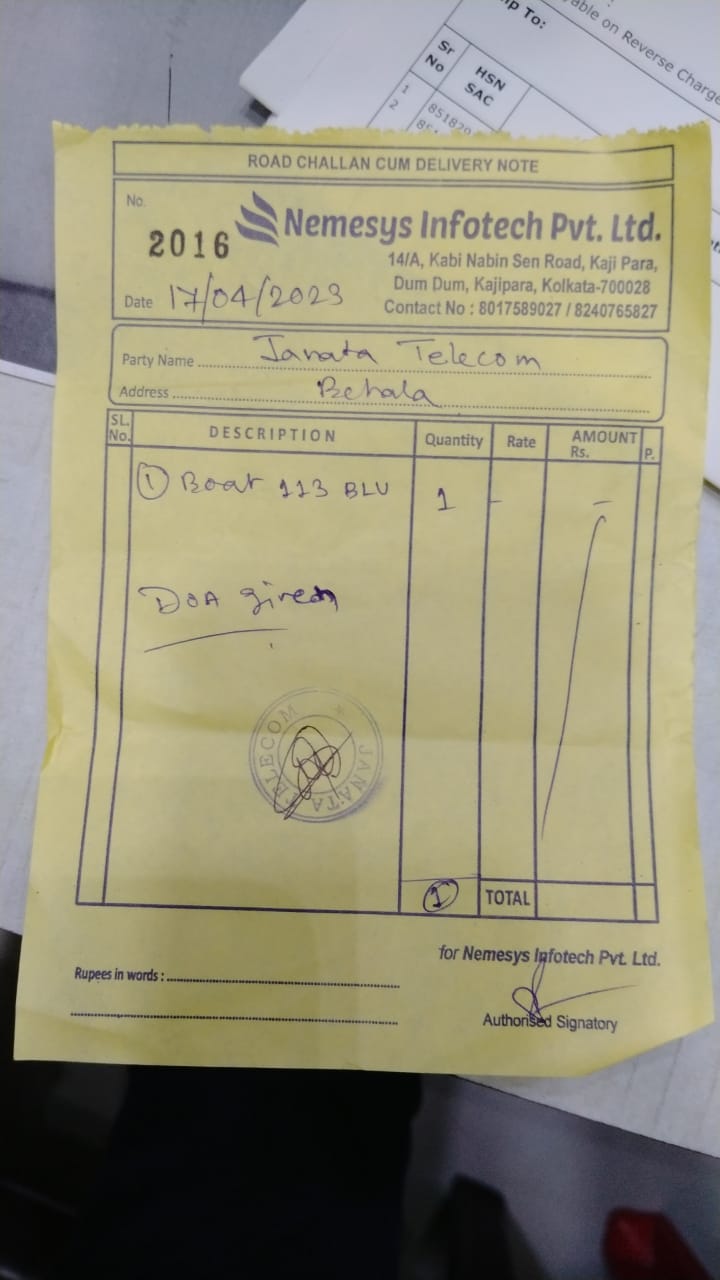 ip To:
able on Reverse Charge
Sr No
HSN SAC
1
851829
2
ROAD CHALLAN CUM DELIVERY NOTE
No. 2016
Nemesys Infotech Pvt. Ltd.
14/A, Kabi Nabin Sen Road, Kaji Para,
Dum Dum, Kajipara, Kolkata-700028
Contact No : 8017589027 / 8240765827
Date 17/04/2023
Party Name Janata Telecom
Address Behala
SL. No. DESCRIPTION Quantity Rate AMOUNT Rs. P.
① Boat 113 BLU 1 - -
DOA given
JANATA TELECOM
1 TOTAL
for Nemesys Infotech Pvt. Ltd.
Rupees in words :
Authorised Signatory